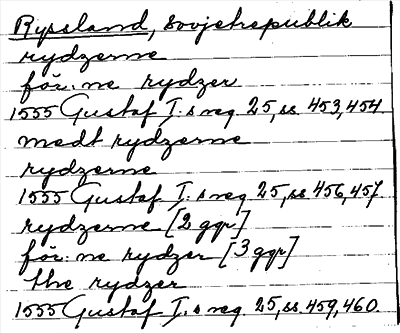 Ryssland, Sovjetrepublik
rydzerne
för: ne rydzer
1555 Gustaf I:s reg. 25, ss. 453, 454.
medt rydzerne
rydzerne
1555 Gustaf I:s reg. 25, ss. 456, 457.
rydzerne [2 ggr]
för: ne rydzer [3 ggr]
the rydzer
1555 Gustaf I:s reg. 25, ss. 459, 460.